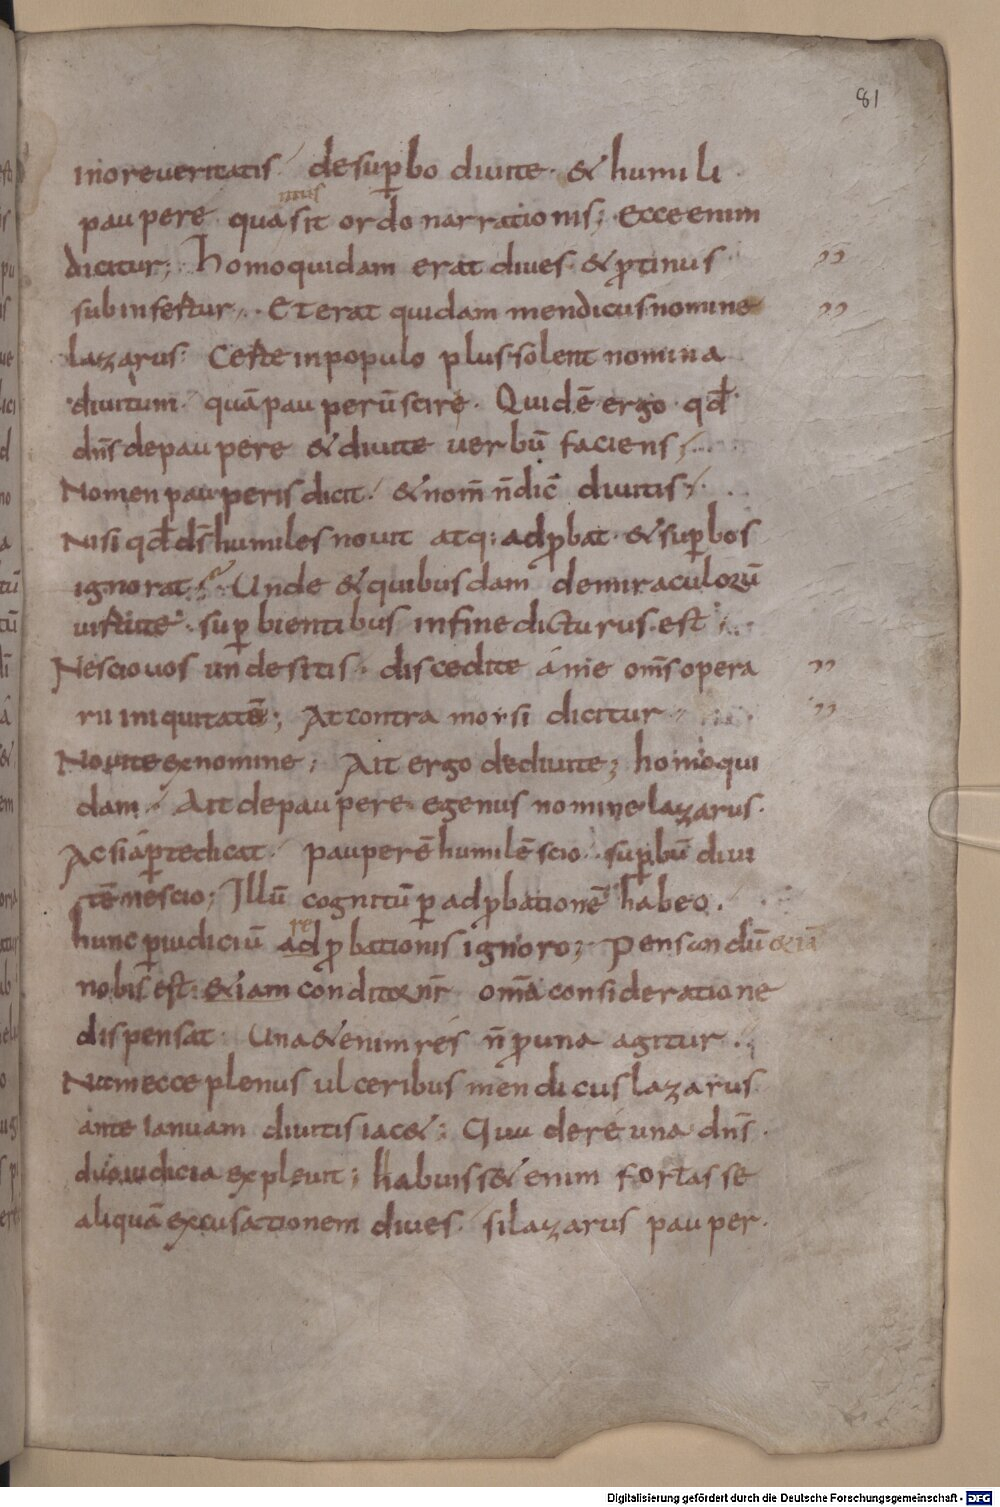 81
in ore ueritatis. de sup̱bo diuite. & humili
paupere quasit ordo narrationis; Ecce enim
mus
dicitur; Homo quidam erat diues & ꝓtinus
subinfertur. Et erat quidam mendicus nomine
lazarus. Certe in populo plus solent nomina
diuitum quā pauperū scire. Quid ē ergo qđ
dn̄s de paupere & diuite uerbū faciens
Nomen pauperis dicit. & nom̄ n̄ dic̄ diuitis.
Nisi qđ ds̄ humiles nouit atq; adꝓbat. & sup̱bos
ignorat. Unde & quibusdam de miraculorū
uirtute sup̱bientibus in fine dicturus est
Nescio uos unde sitis. discedite á me om̄s opera
rii iniquitatē; At contra moysi dicitur
Noui te ex nomine; Ait ergo de diuite; homo qui
dam. Ait de paupere egenus nomine lazarus.
Ac si ap̱te dicat. pauperē humilē scio. sup̱bū diui
tē nescio; Illū cognitū p̱ adꝓbationē habeo.
re
hunc p̱ iudiciū adꝓbationis ignoro; Pensandū &iā
nobis est. & iam conditor nr̄ om̄a consideratione
dispensat. Una & enim rés n̄ ꝓ una agitur.
Nam ecce plenus ulceribus mendicus lazarus
ante ianuam diuitis iac&; Qua de ré una dn̄s
duo iudicia expleuit; habuiss& enim fortasse
aliquā excusationem diues. si lazarus pauper.
Digitalisierung gefördert durch die Deutsche Forschungsgemeinschaft - DFG